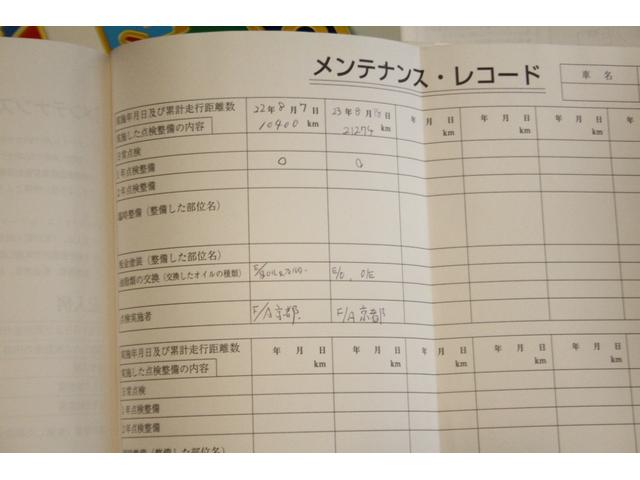 メンテナンス・レコード
車名
実施年月日及び累計走行距離数 22年8月7日 23年8月 日 年 月 日 年 月 日 年 月 日
実施した点検整備の内容 10400 km 21274 km km km km
日常点検
1年点検整備 ○ ○
2年点検整備
臨時整備(整備した部位名)
板金塗装(整備した部位名)
油脂類の交換(交換したオイルの種類) E/O, O/E
点検実施者 F/A京都 F/A京都
実施年月日及び累計走行距離数 年 月 日 年 月 日 年 月 日 年 月 日 年 月 日
実施した点検整備の内容 km km km km km
日常点検
1年点検整備
2年点検整備